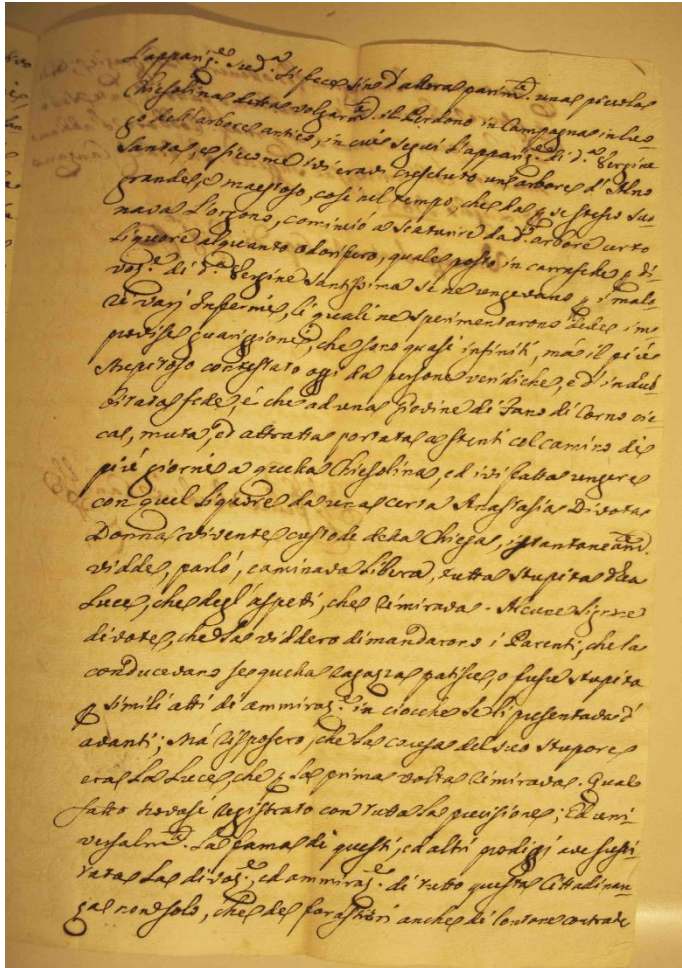 L'appariz.e sud.a si fece sino d'allora parim.te una piccola
Chiesolina detta volgarm.te il Perdono in Campagna in luo-
go dell'arbore antico, in cui seguì l'appariz.e di d.a Vergine
Santa, e siccome ivi eravi cresciuto un'arbore d'Alno
grande, e maestoso, così nel tempo, che da p se stesso suo-
nava l'organo, cominciò a scaturire da d.o arbore certo
liquore alquanto odorifero, quale posto in carrafche p di-
voz.e di d.a Vergine Santissima se ne ungevano p i mali
varj Infermi, li quali ne sperimentarono
guarigione, che sono quasi infiniti, mà il più
strepitoso contestato oggi da persone veridiche, e d'indub-
bitata fede, è che ad una Giovine di Fano di Corno cie-
ca, muta, ed attratta portata a stenti col camino di
più giorni a quella Chiesolina, ed ivi fatta ungere
con quel liquore da una certa Anastasia Divota
Donna vivente custode della Chiesa, istantaneam.te
vidde, parlò, caminava libera, tutta stupita della
luce, che degl'aspetti, che rimirava. Alcune Signore
divote, che la viddero dimandarono i Parenti, che la
conducevano se quella ragazza patisce, o fusse stupita
p simili atti di ammiraz.e in ciocche se li presentava d'
avanti; Mà risposero, che la causa del suo stupore
era la luce, che p la prima volta rimirava. Quale
fatto trovasi registrato con tutta la precisione; Ed uni-
versalm.te la fama di questi, ed altri prodigj
la divoz.e, ed ammiraz.e di tutto questa Cittadinan-
za non solo, che de forastieri anche di lontane contrade